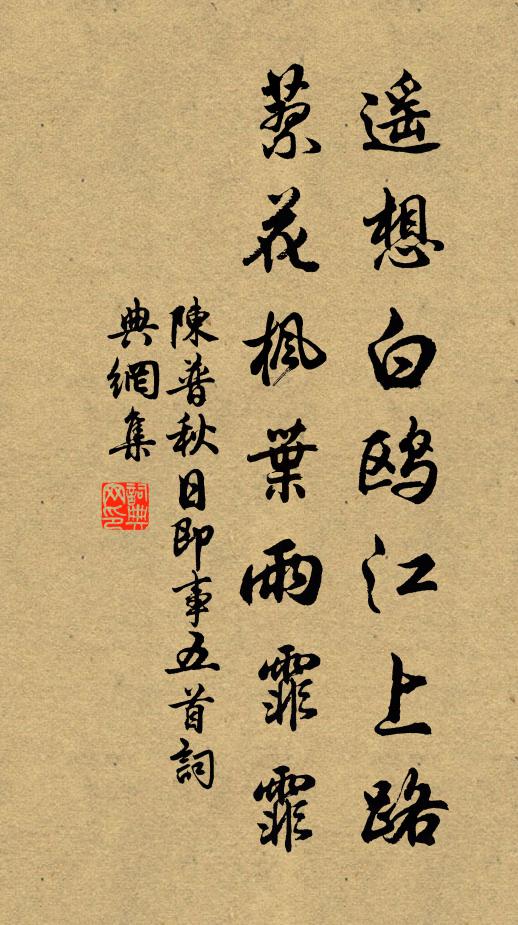 遥想白鷗江上路
蓼花楓葉雨霏霏
陳普秋日即事五首詞
典網集
詞典
网印